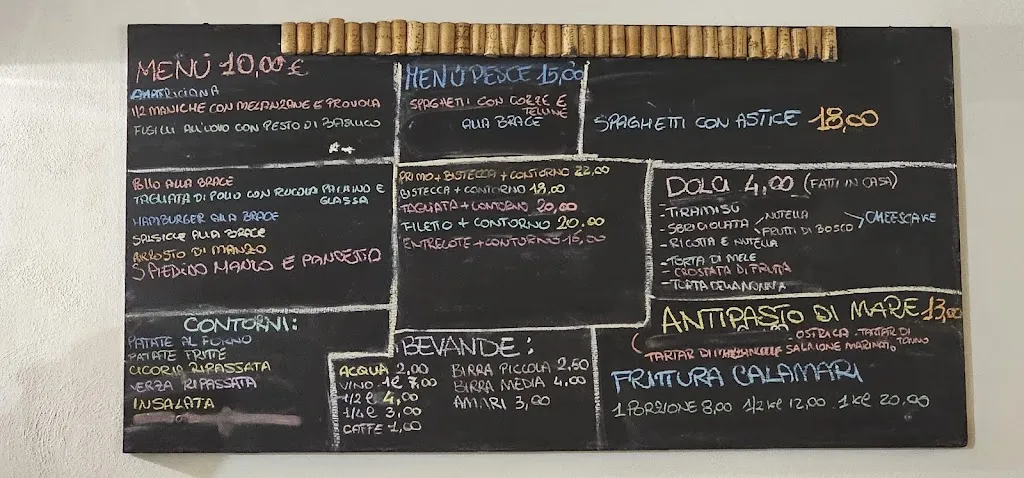 MENÙ 10,00 €
AMATRICIANA
1/2 MANICHE CON MELANZANE E PROVOLA
FUSILLI ALL'UOVO CON PESTO DI BASILICO
POLLO ALLA BRACE
TAGLIATA DI POLLO CON RUCOLA PACHINO E
GLASSA
HAMBURGER ALLA BRACE
SALSICCE ALLA BRACE
ARROSTO DI MANZO
SPIEDINO MANZO E PANCETTA
CONTORNI:
PATATE AL FORNO
PATATE FRITTE
CICORIA RIPASSATA
VERZA RIPASSATA
INSALATA
MENÙ PESCE 15,00
SPAGHETTI CON COZZE E
TELLINE
ALLA BRACE
SPAGHETTI CON ASTICE 18,00
PRIMO + BISTECCA + CONTORNO 22,00
BISTECCA + CONTORNO 18,00
TAGLIATA + CONTORNO 20,00
FILETTO + CONTORNO 20.00
ENTRECOTE + CONTORNO 15,00
DOLCI 4,00 (FATTI IN CASA)
- TIRAMISÙ
- SBRICIOLATA NUTELLA
FRUTTI DI BOSCO CHEESCAKE
- RICOTTA E NUTELLA
- TORTA DI MELE
- CROSTATA DI FRUTTA
- TORTA DELLA NONNA
BEVANDE:
ACQUA 2,00
VINO 1 l 7,00
1/2 l 4,00
1/4 l 3,00
CAFFE 1,00
BIRRA PICCOLA 2,50
BIRRA MEDIA 4,00
AMARI 3,00
ANTIPASTO DI MARE 13,00
OSTRICA - TARTAR DI TONNO
TARTAR DI SALMONE MARINATI,
FRITTURA CALAMARI
1 PORZIONE 8,00 1/2 kl 12,00 1 kl 20,00